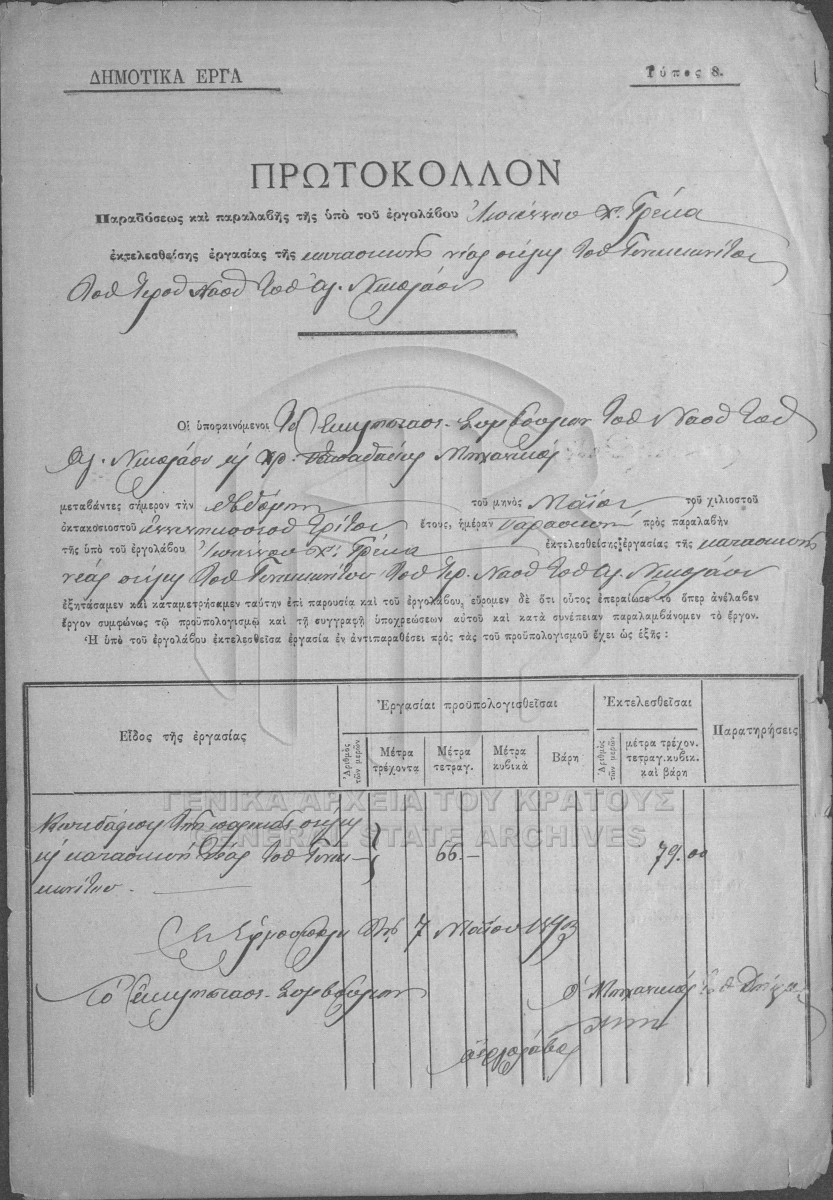 ΔΗΜΟΤΙΚΑ ΕΡΓΑ
Τύπος 8.
ΠΡΩΤΟΚΟΛΛΟΝ
Παραδόσεως καὶ παραλαβῆς τῆς ὑπὸ τοῦ ἐργολάβου Ἰωάννου Χ. Γρύπα
ἐκτελεσθείσης ἐργασίας τῆς κατασκευῆς νέας στέγης τοῦ Γυναικωνίτου
τοῦ Ἱεροῦ Ναοῦ τοῦ Ἁγ. Νικολάου
Οἱ ὑποφαινόμενοι Τὸ Ἐκκλησιασ. Συμβούλιον τοῦ Ναοῦ τοῦ
Ἁγ. Νικολάου Μηχανικὸς
μεταβάντες σήμερον τὴν ἑβδόμην τοῦ μηνὸς Μαΐου τοῦ χιλιοστοῦ
ὀκτακοσιοστοῦ ἐννενηκοστοῦ τρίτου ἔτους, ἡμέραν Παρασκευὴν πρὸς παραλαβὴν
τῆς ὑπὸ τοῦ ἐργολάβου Ἰωάννου Χ. Γρύπα ἐκτελεσθείσης ἐργασίας τῆς κατασκευῆς
νέας στέγης τοῦ Γυναικωνίτου τοῦ Ἱερ. Ναοῦ τοῦ Ἁγ. Νικολάου
ἐξητάσαμεν καὶ καταμετρήσαμεν ταύτην ἐπὶ παρουσίᾳ καὶ τοῦ ἐργολάβου, εὕρομεν δὲ ὅτι οὗτος ἐπεραίωσε τὸ ὅπερ ἀνέλαβεν
ἔργον συμφώνως τῷ προϋπολογισμῷ καὶ τῇ συγγραφῇ ὑποχρεώσεων αὐτοῦ καὶ κατὰ συνέπειαν παραλαμβάνομεν τὸ ἔργον.
Ἡ ὑπὸ τοῦ ἐργολάβου ἐκτελεσθεῖσα ἐργασία ἐν ἀντιπαραθέσει πρὸς τὰς τοῦ προϋπολογισμοῦ ἔχει ὡς ἑξῆς:
Εἶδος τῆς ἐργασίας
Ἐργασίαι προϋπολογισθεῖσαι
Ἐκτελεσθεῖσαι
Παρατηρήσεις
Ἀριθμὸς τῶν μερῶν
Μέτρα τρέχοντα
Μέτρα τετραγ.
Μέτρα κυβικὰ
Βάρη
Ἀριθμὸς τῶν μερῶν
μέτρα τρέχον. τετραγ. κυβικ. καὶ βάρη
ΓΕΝΙΚΑ ΑΡΧΕΙΑ ΤΟΥ ΚΡΑΤΟΥΣ
GENERAL STATE ARCHIVES
στέγης
κατασκευὴ νέας τοῦ Γυναι-
κωνίτου
66.—
79.00
Ἐν Ἑρμουπόλει τῇ 7 Μαΐου 1893
Τὸ Ἐκκλησιασ. Συμβούλιον
Ὁ Μηχανικὸς τοῦ Δήμου
Ὁ ἐργολάβος